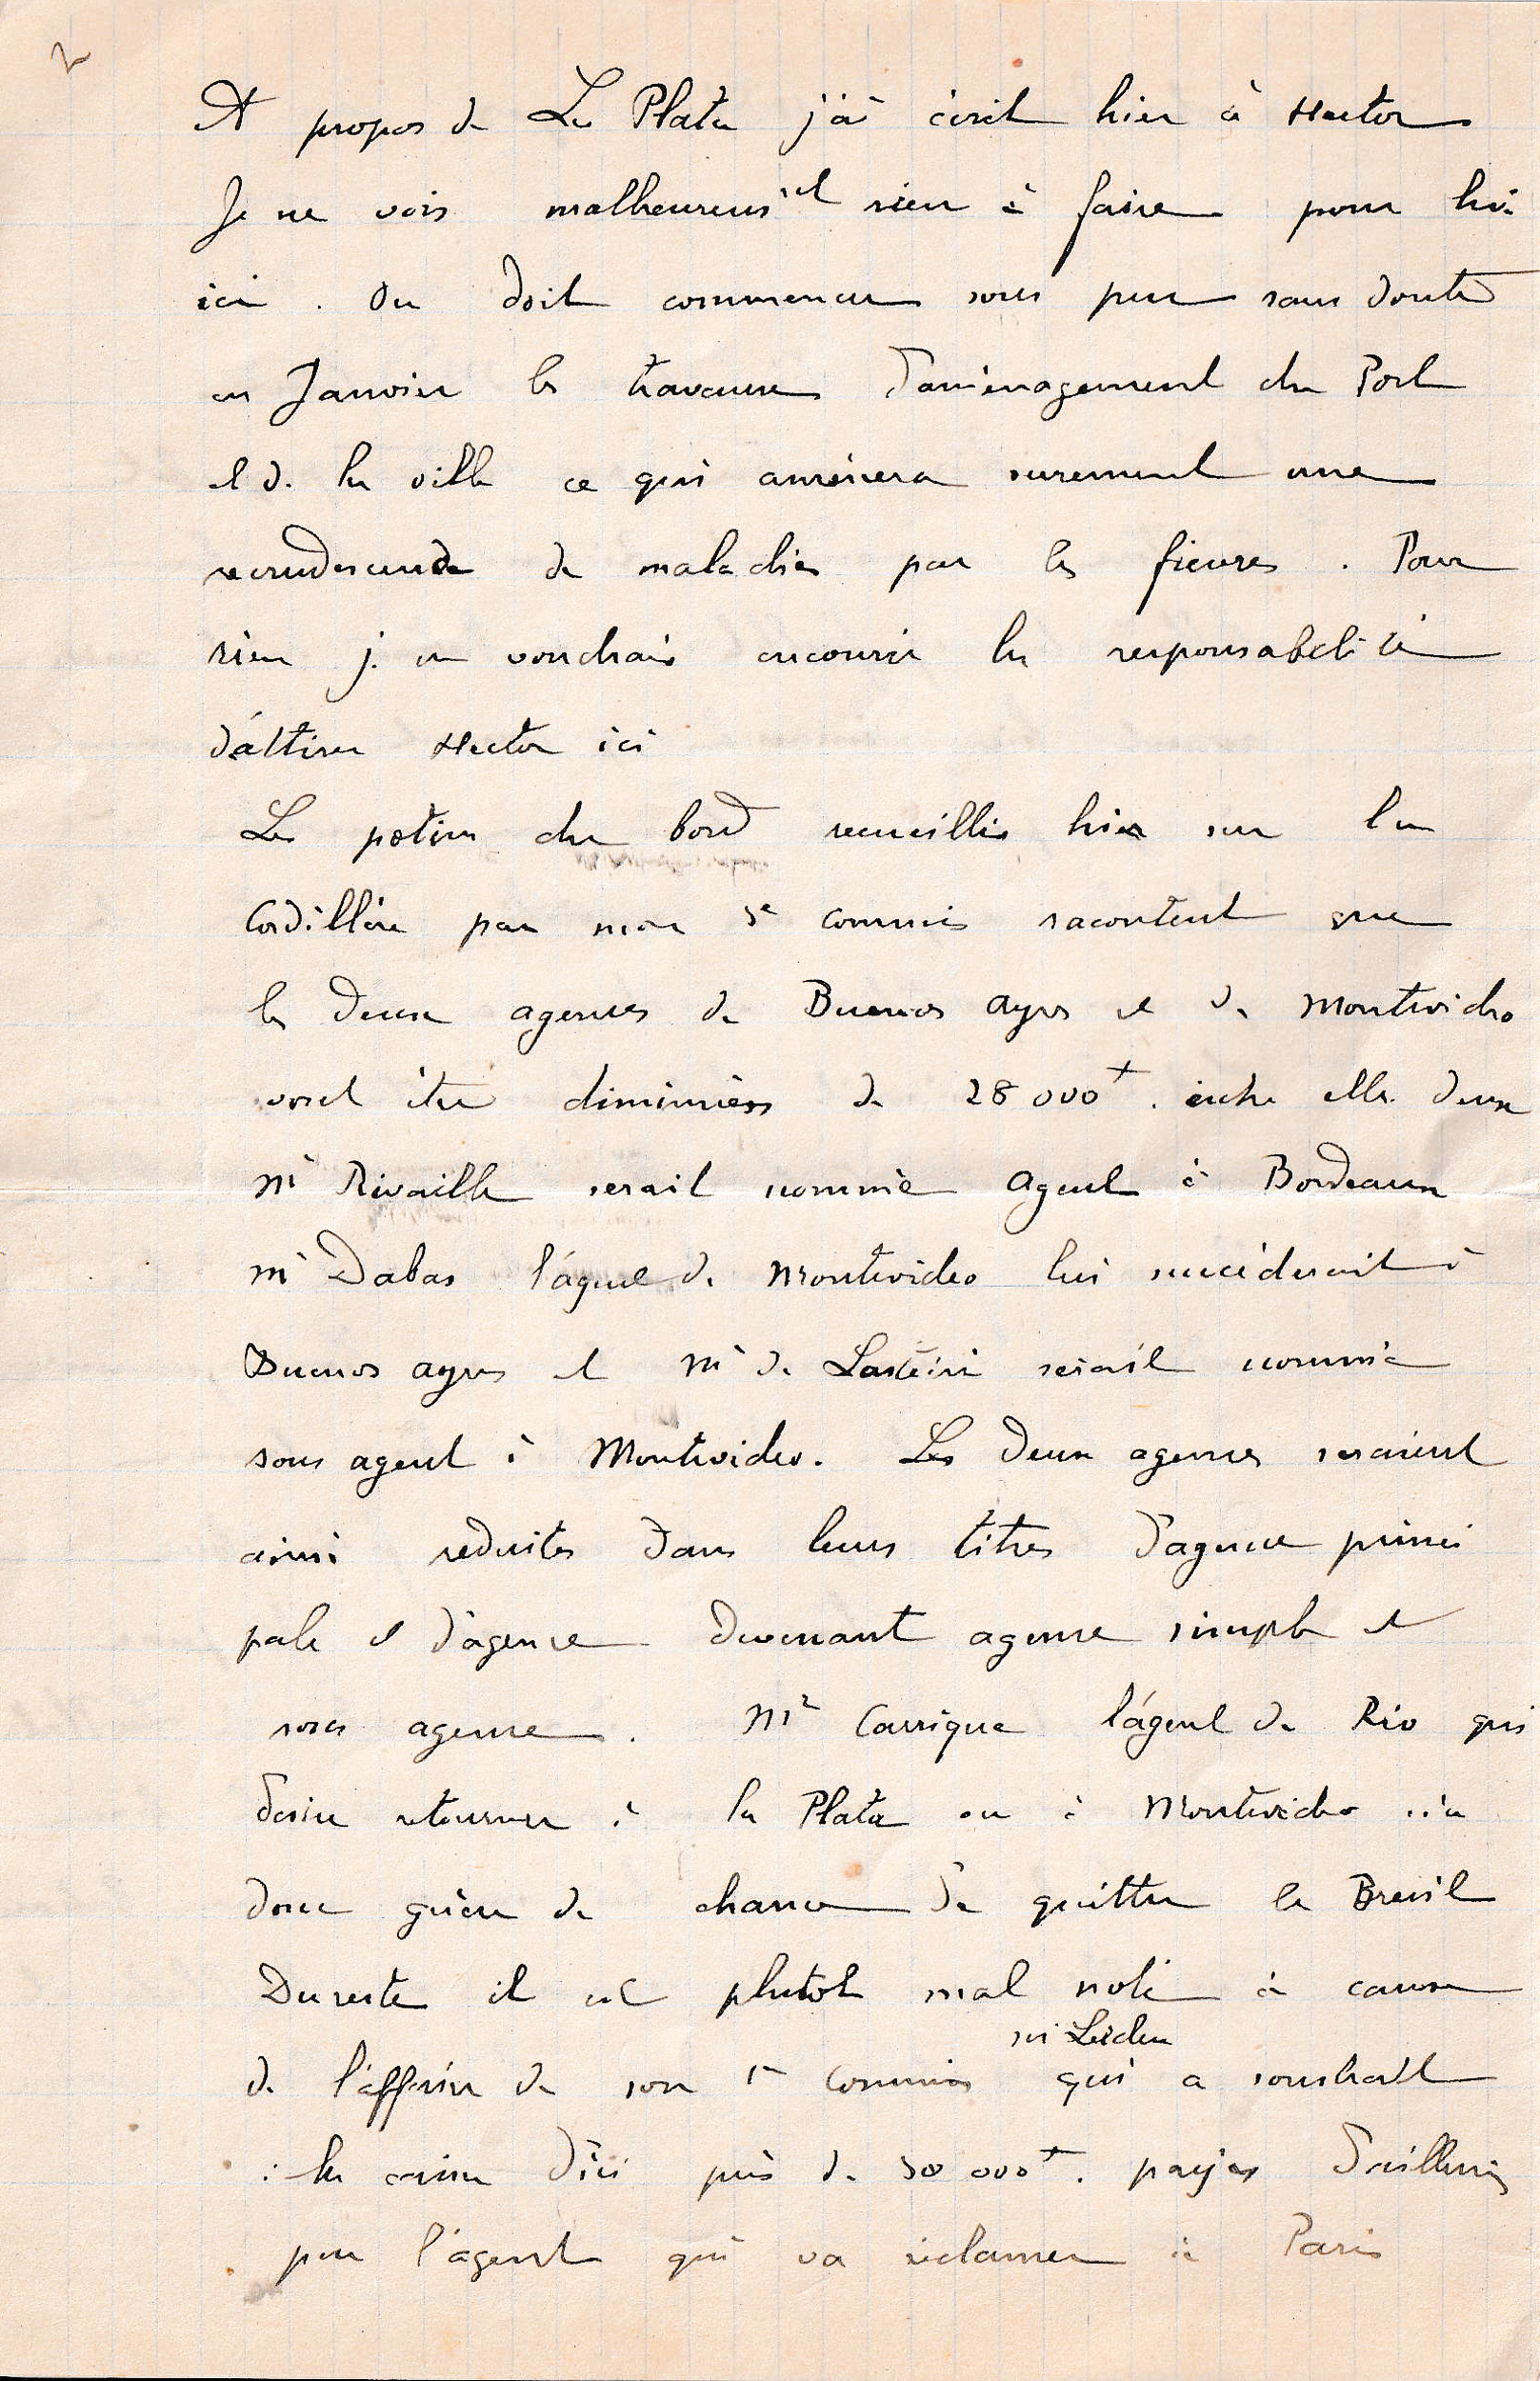 2
A propos de La Plata j'ai écrit hier à Hector
Je ne vois malheureus^et rien à faire pour lui
ici. On doit commencer sous peu sans doute
en Janvier les travaux d'aménagement du Port
et de la ville ce qui amènera surement une
recrudescence de maladies par les fievres. Pour
rien je ne voudrais encourir la responsabilité
d'attirer Hector ici
Les potins du bord recueillis hier sur la
Cordillère par mon 2e commis racontent que
les deux agences de Buenos Ayres et de Montevideo
vont être diminuées de 28 000f. entre elles deux
Mr Rivaille serait nommé Agent à Bordeaux
Mr Dabas l'agent de Montevideo lui succéderait à
Buenos Ayres et Mr de Lasteirie serait nommé
sous agent à Montevideo. Les deux agences seraient
ainsi reduites dans leurs titres d'agence princi
pale et d'agence devenant agence simple et
sous agence. Mr Carrique l'agent de Rio qui
desire retourner à la Plata ou à Montevideo n'a
donc guère de chance de quitter le Bresil
Du reste il est plutot mal noté à cause
de l'affaire de son 1er commis qui a soustrait
à la caisse d'ici près de 30 000f. payes d'ailleurs
par l'agent qui va réclamer à Paris